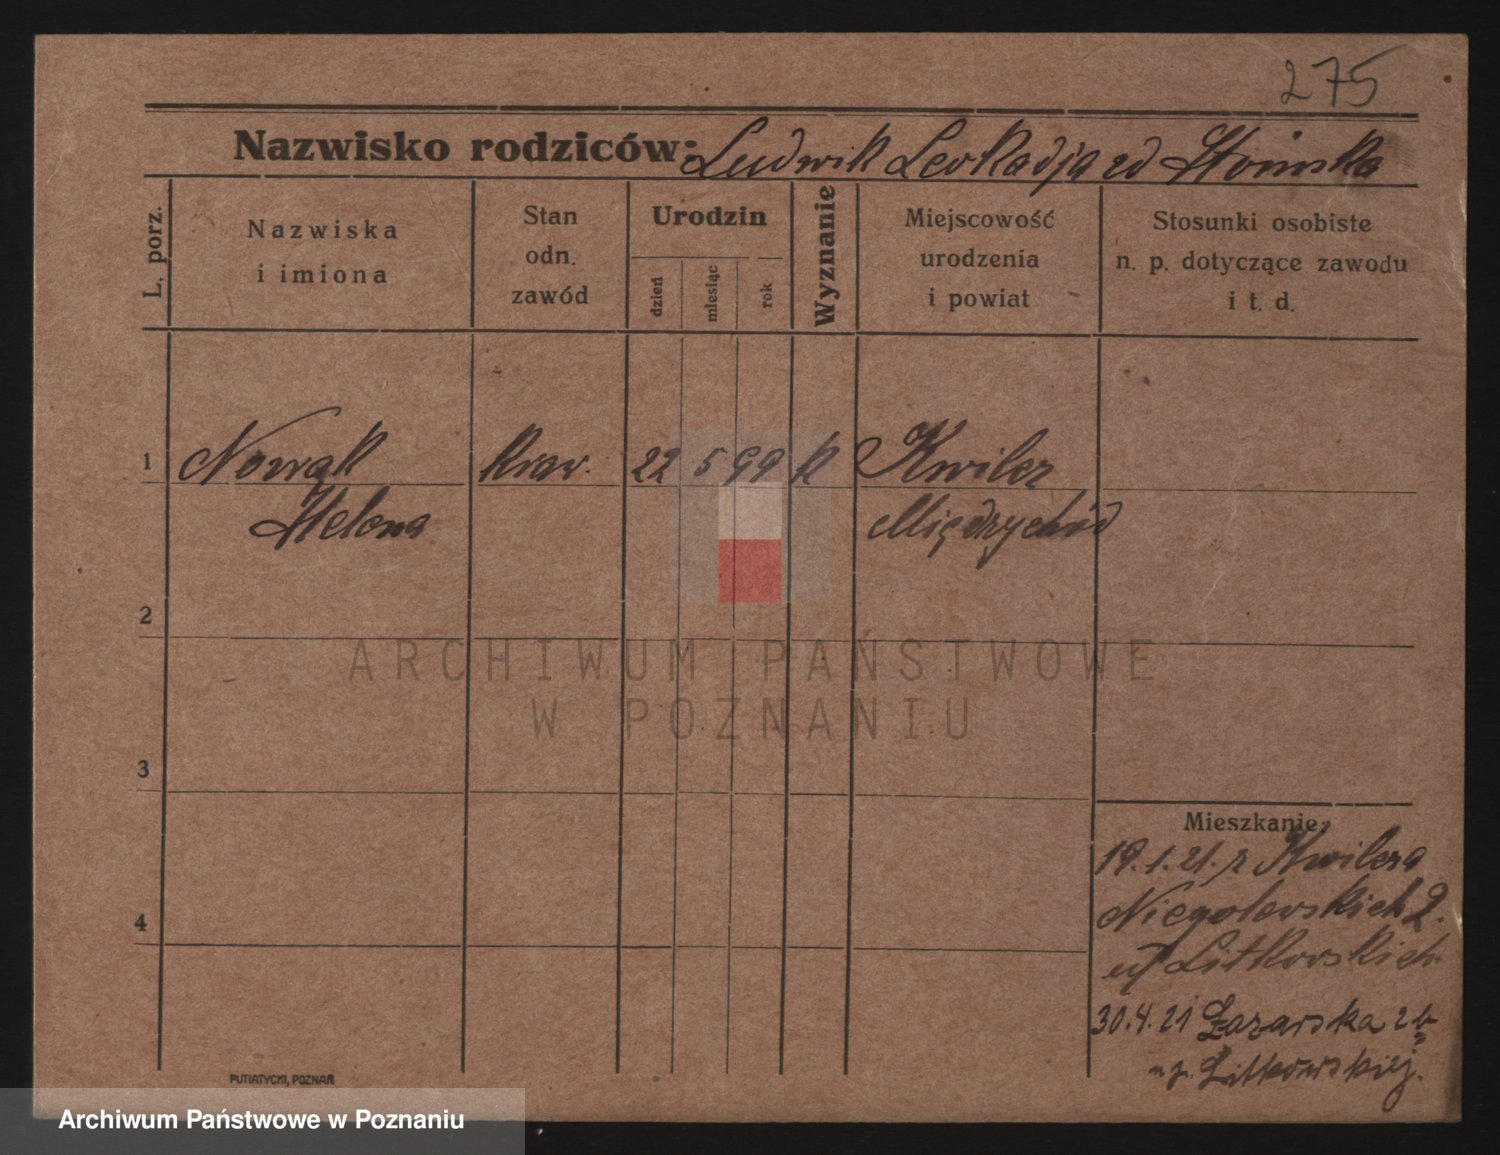 275
Nazwisko rodziców: Ludwik Leokadja zd
L. porz.
Nazwiska
i imiona
Stan
odn.
zawód
Urodzin
dzień
miesiąc
rok
Wyznanie
Miejscowość
urodzenia
i powiat
Stosunki osobiste
n. p. dotyczące zawodu
i t. d.
1 Nowak kraw. 22 5 99 k Kwilcz
Helena Międzychód
2
ARCHIWUM PAŃSTWOWE
W POZNANIU
3
Mieszkanie:
19.1.21. z Kwilcza
Niegolewskich 2.
4
Litkowskich
30.4.21 Łazarska 2b
Litkowskiej.
PUTIATYCKI, POZNAŃ
Archiwum Państwowe w Poznaniu